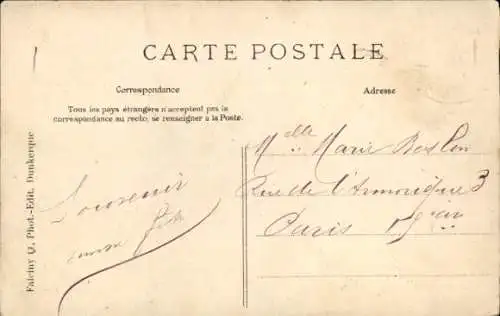 CARTE POSTALE
Correspondance
Tous les pays étrangers n'acceptent pas la
correspondance au recto, se renseigner à la Poste.
Adresse
Souvenir
Melle Marie
Rue de l'Armorique 3
Paris
Phot.-Edit. Dunkerque